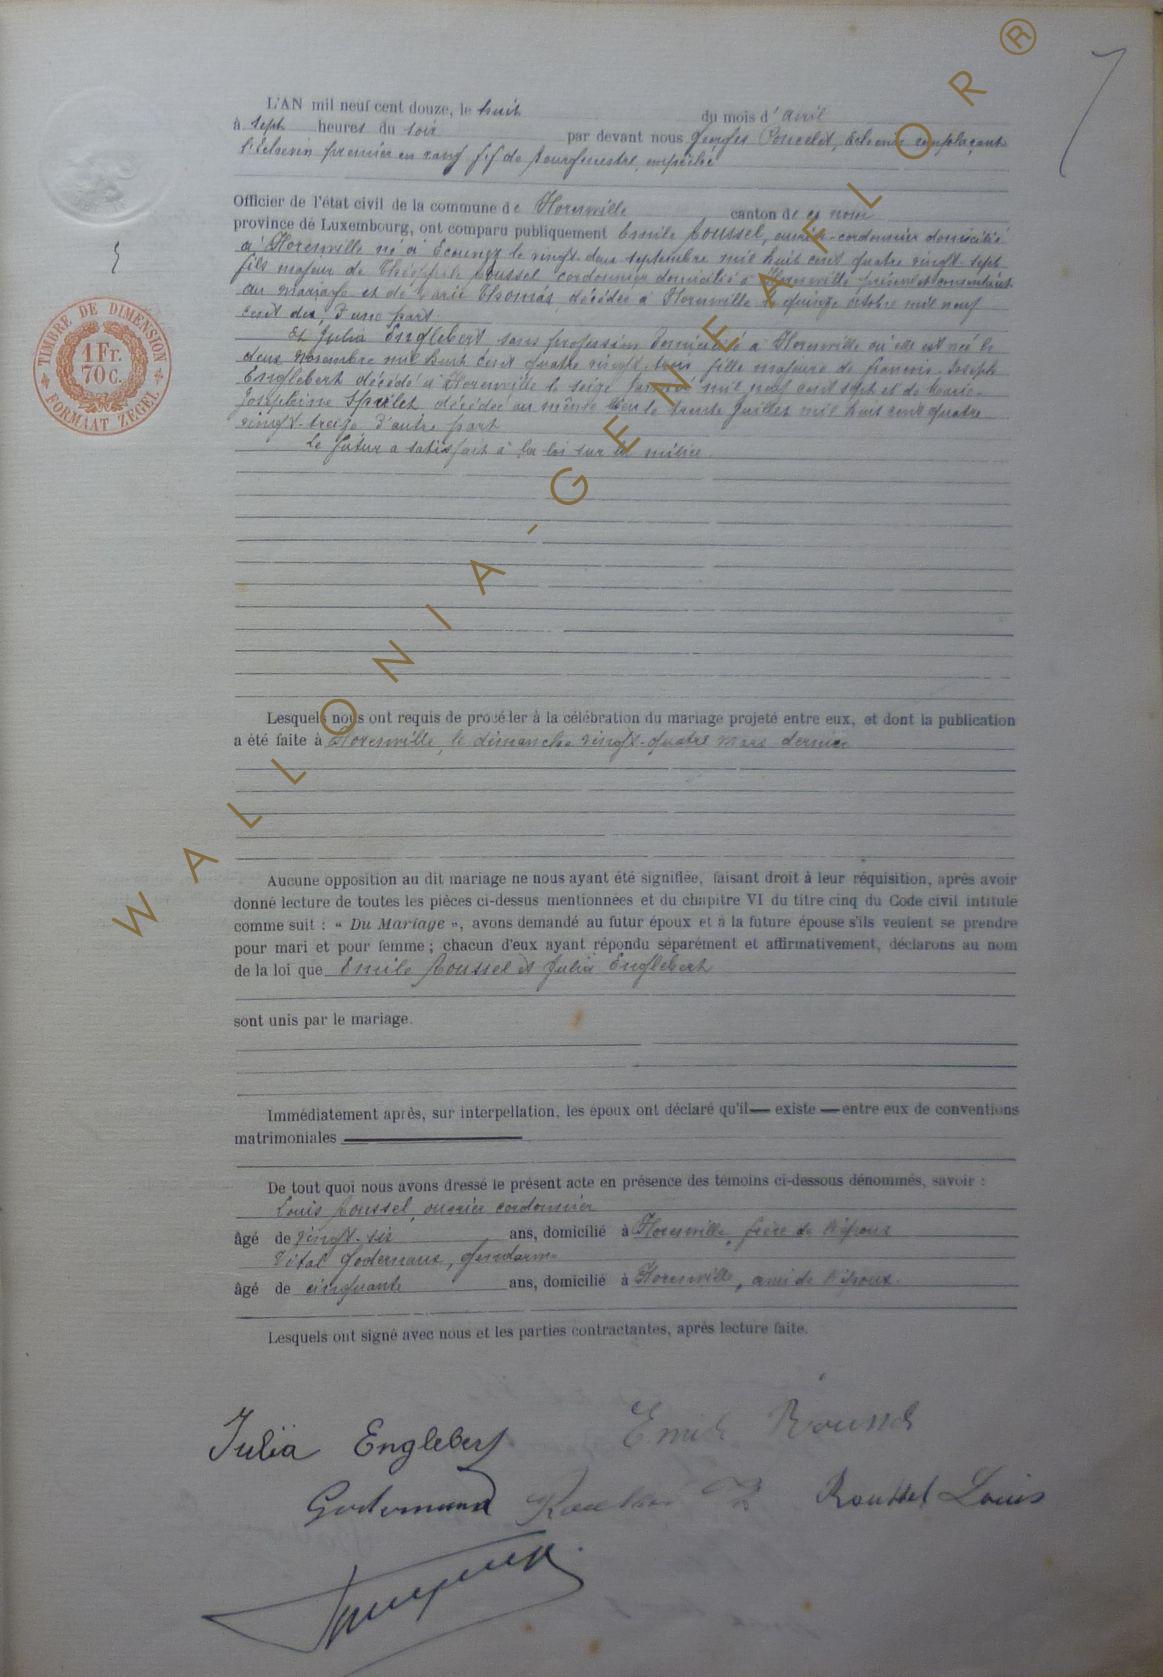 L'AN mil neuf cent douze, le huit du mois d'avril
à sept heures du soir par devant nous Georges Poncelet, échevin remplaçant
l'échevin premier en rang ff de bourgmestre, empêché
Officier de l'état civil de la commune de Florenville canton de ce nom
province de Luxembourg, ont comparu publiquement Emile Roussel, ouvrier-cordonnier domicilié
à Florenville né à Ecouviez le vingt-deux septembre mil huit cent quatre vingt-sept
fils majeur de Théophile Roussel cordonnier domicilié à Florenville présent et consentant
au mariage et de Marie Thomas, décédée à Florenville le quinze octobre mil neuf
cent dix, d'une part.
Et Julia Englebert sans profession domiciliée à Florenville où elle est née le
deux novembre mil huit cent quatre vingt-trois fille majeure de François-Joseph
Englebert décédé à Florenville le seize mil neuf cent sept et de Marie-
Joséphine décédée au même lieu le trente Juillet mil huit cent quatre
vingt-treize d'autre part
Le futur a satisfait à la loi sur la milice.
Lesquels nous ont requis de procéder à la célébration du mariage projeté entre eux, et dont la publication
a été faite à Florenville, le dimanche vingt-quatre mars dernier
Aucune opposition au dit mariage ne nous ayant été signifiée, faisant droit à leur réquisition, après avoir
donné lecture de toutes les pièces ci-dessus mentionnées et du chapitre VI du titre cinq du Code civil intitulé
comme suit : « Du Mariage », avons demandé au futur époux et à la future épouse s'ils veulent se prendre
pour mari et pour femme ; chacun d'eux ayant répondu séparément et affirmativement, déclarons au nom
de la loi que Emile Roussel et Julia Englebert
sont unis par le mariage.
Immédiatement après, sur interpellation, les époux ont déclaré qu'il — existe — entre eux de conventions
matrimoniales
De tout quoi nous avons dressé le présent acte en présence des témoins ci-dessous dénommés, savoir :
Louis Roussel, ouvrier cordonnier
âgé de vingt-six ans, domicilié à Florenville, frère de l'époux
Vital Godernaux, gendarme
âgé de cinquante ans, domicilié à Florenville, ami de l'époux.
Lesquels ont signé avec nous et les parties contractantes, après lecture faite.
Julia Englebert Emile Roussel
Roussel Louis
TIMBRE DE DIMENSION
1 Fr.
70 c.
FORMAAT ZEGEL
WALLONIA-GENEAFLOR®